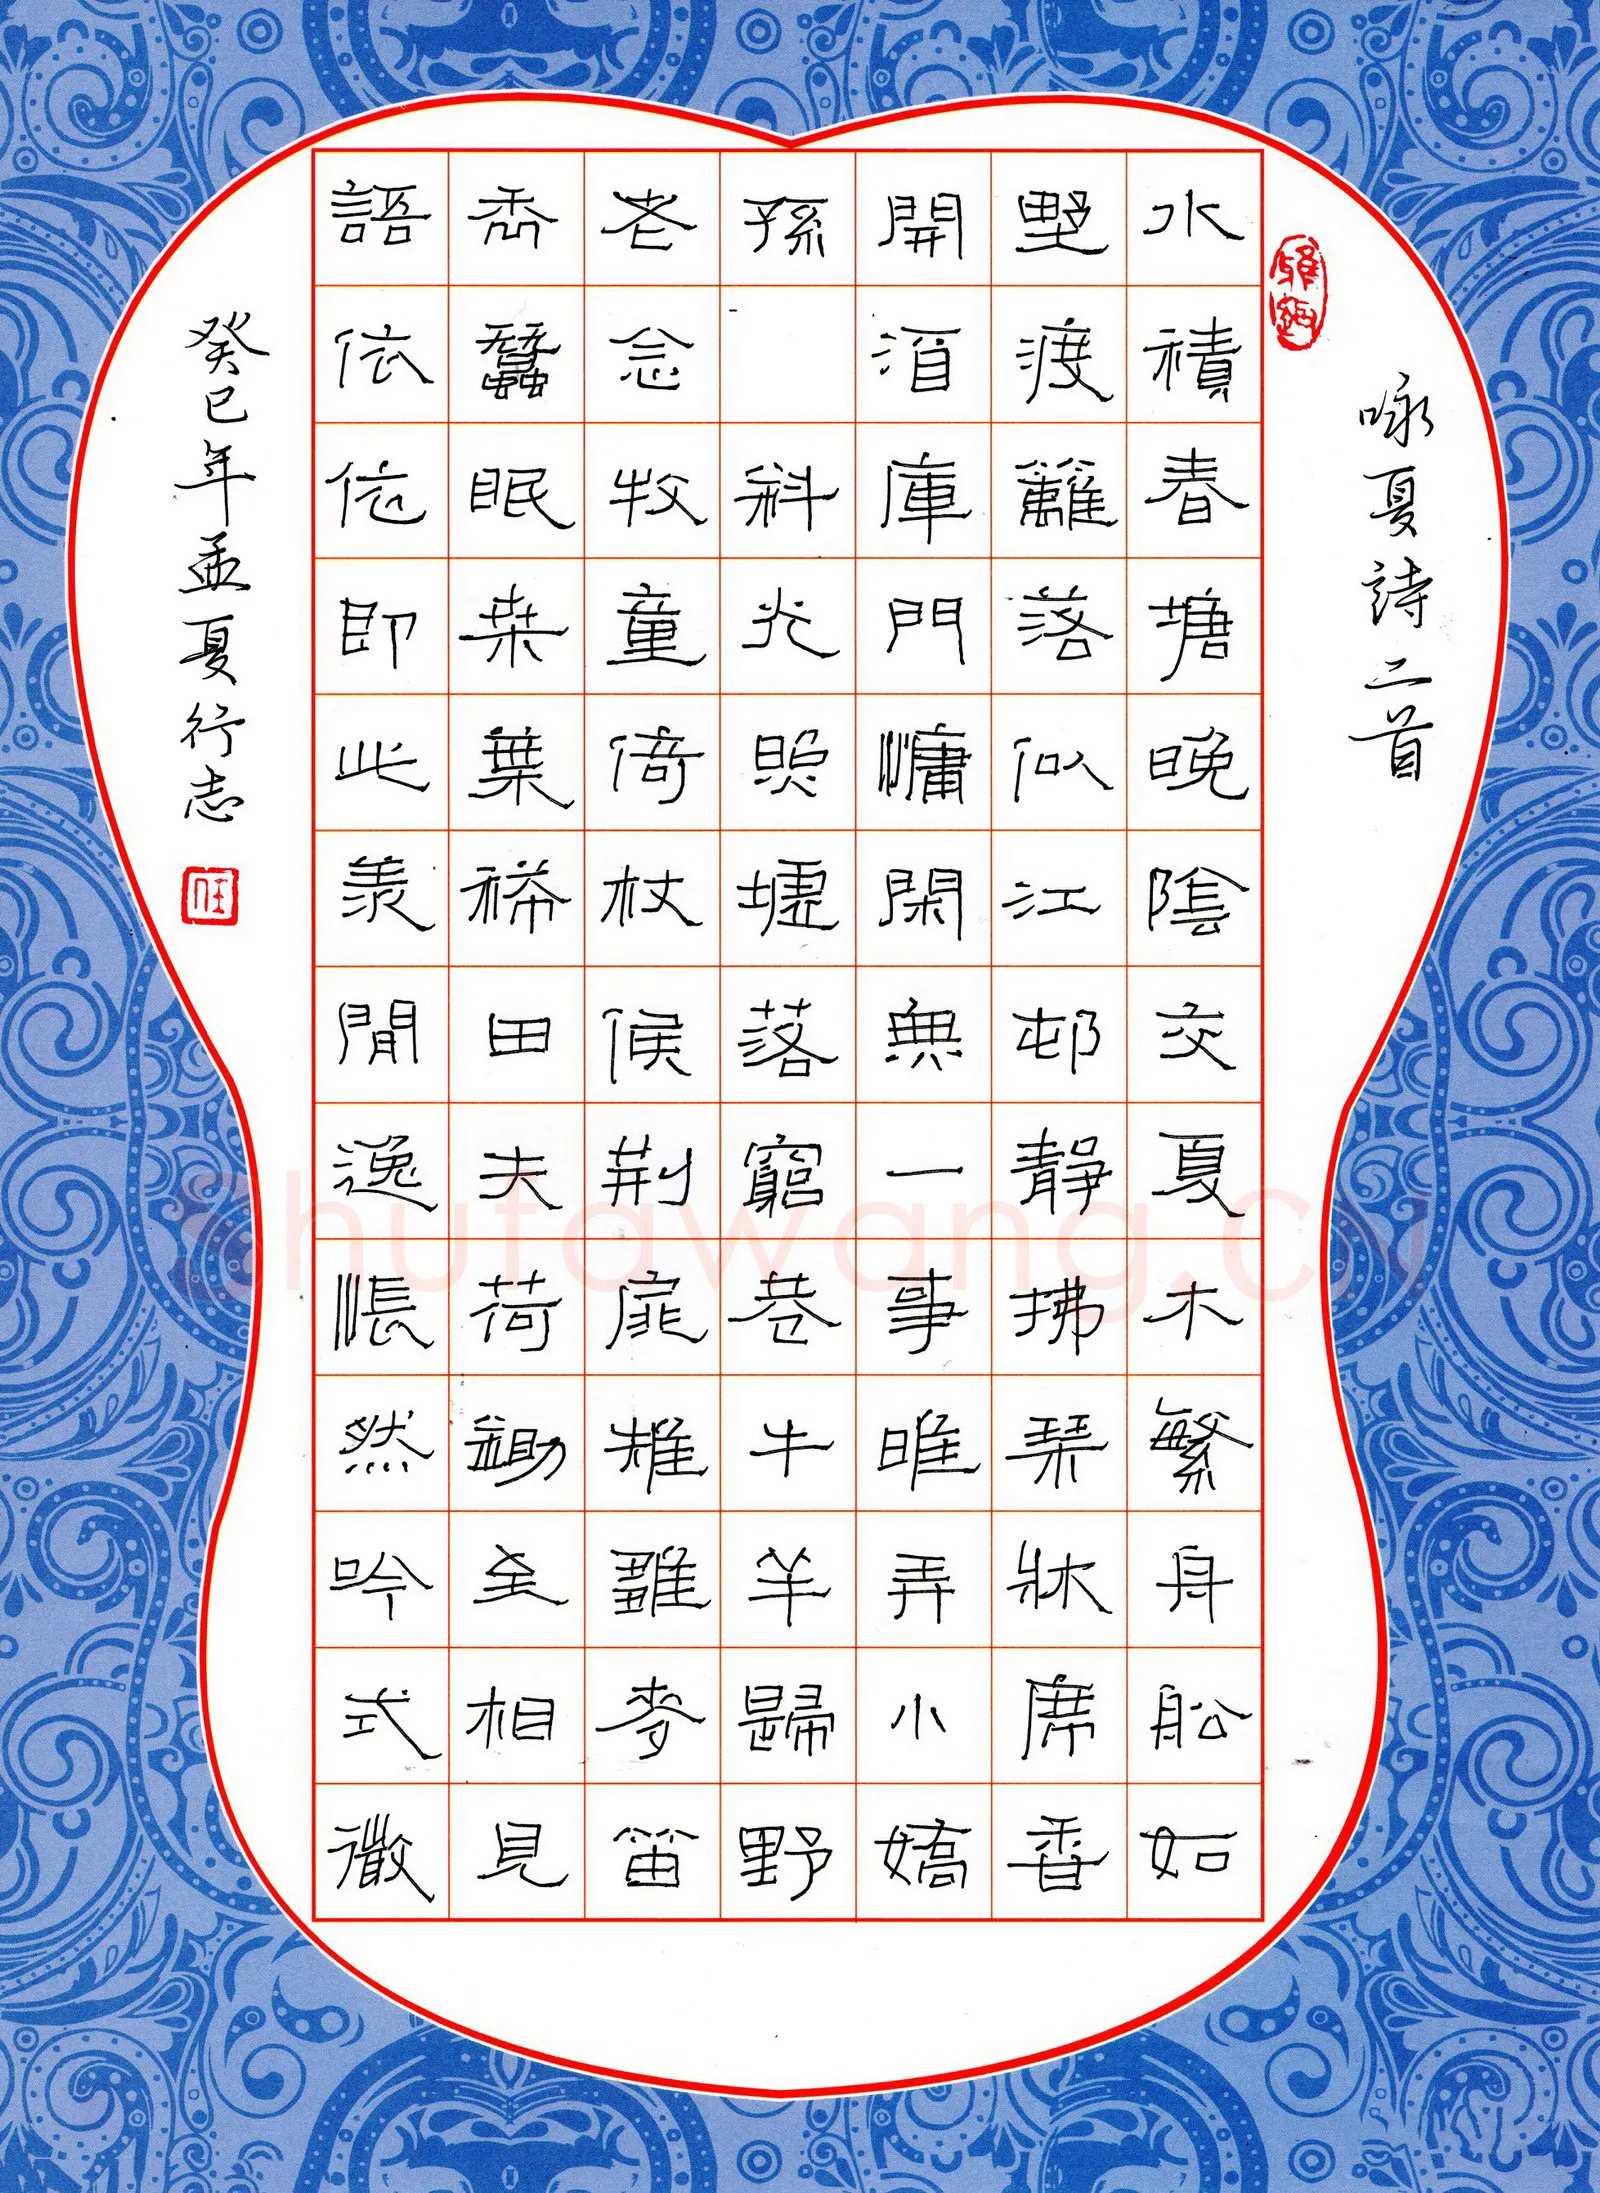 咏夏詩二首
水積春塘晚陰交夏木繁舟船如
野渡籬落似江邨靜拂琴牀席香
開酒庫門慵閑無一事唯弄小嬌
孫 斜光照墟落窮巷牛羊歸野
老念牧童倚杖候荊扉雉雊麥苗
秀蠶眠桑葉稀田夫荷鋤至相見
語依依即此羨閒逸悵然吟式微
癸巳年孟夏行志
Shufawang.CN